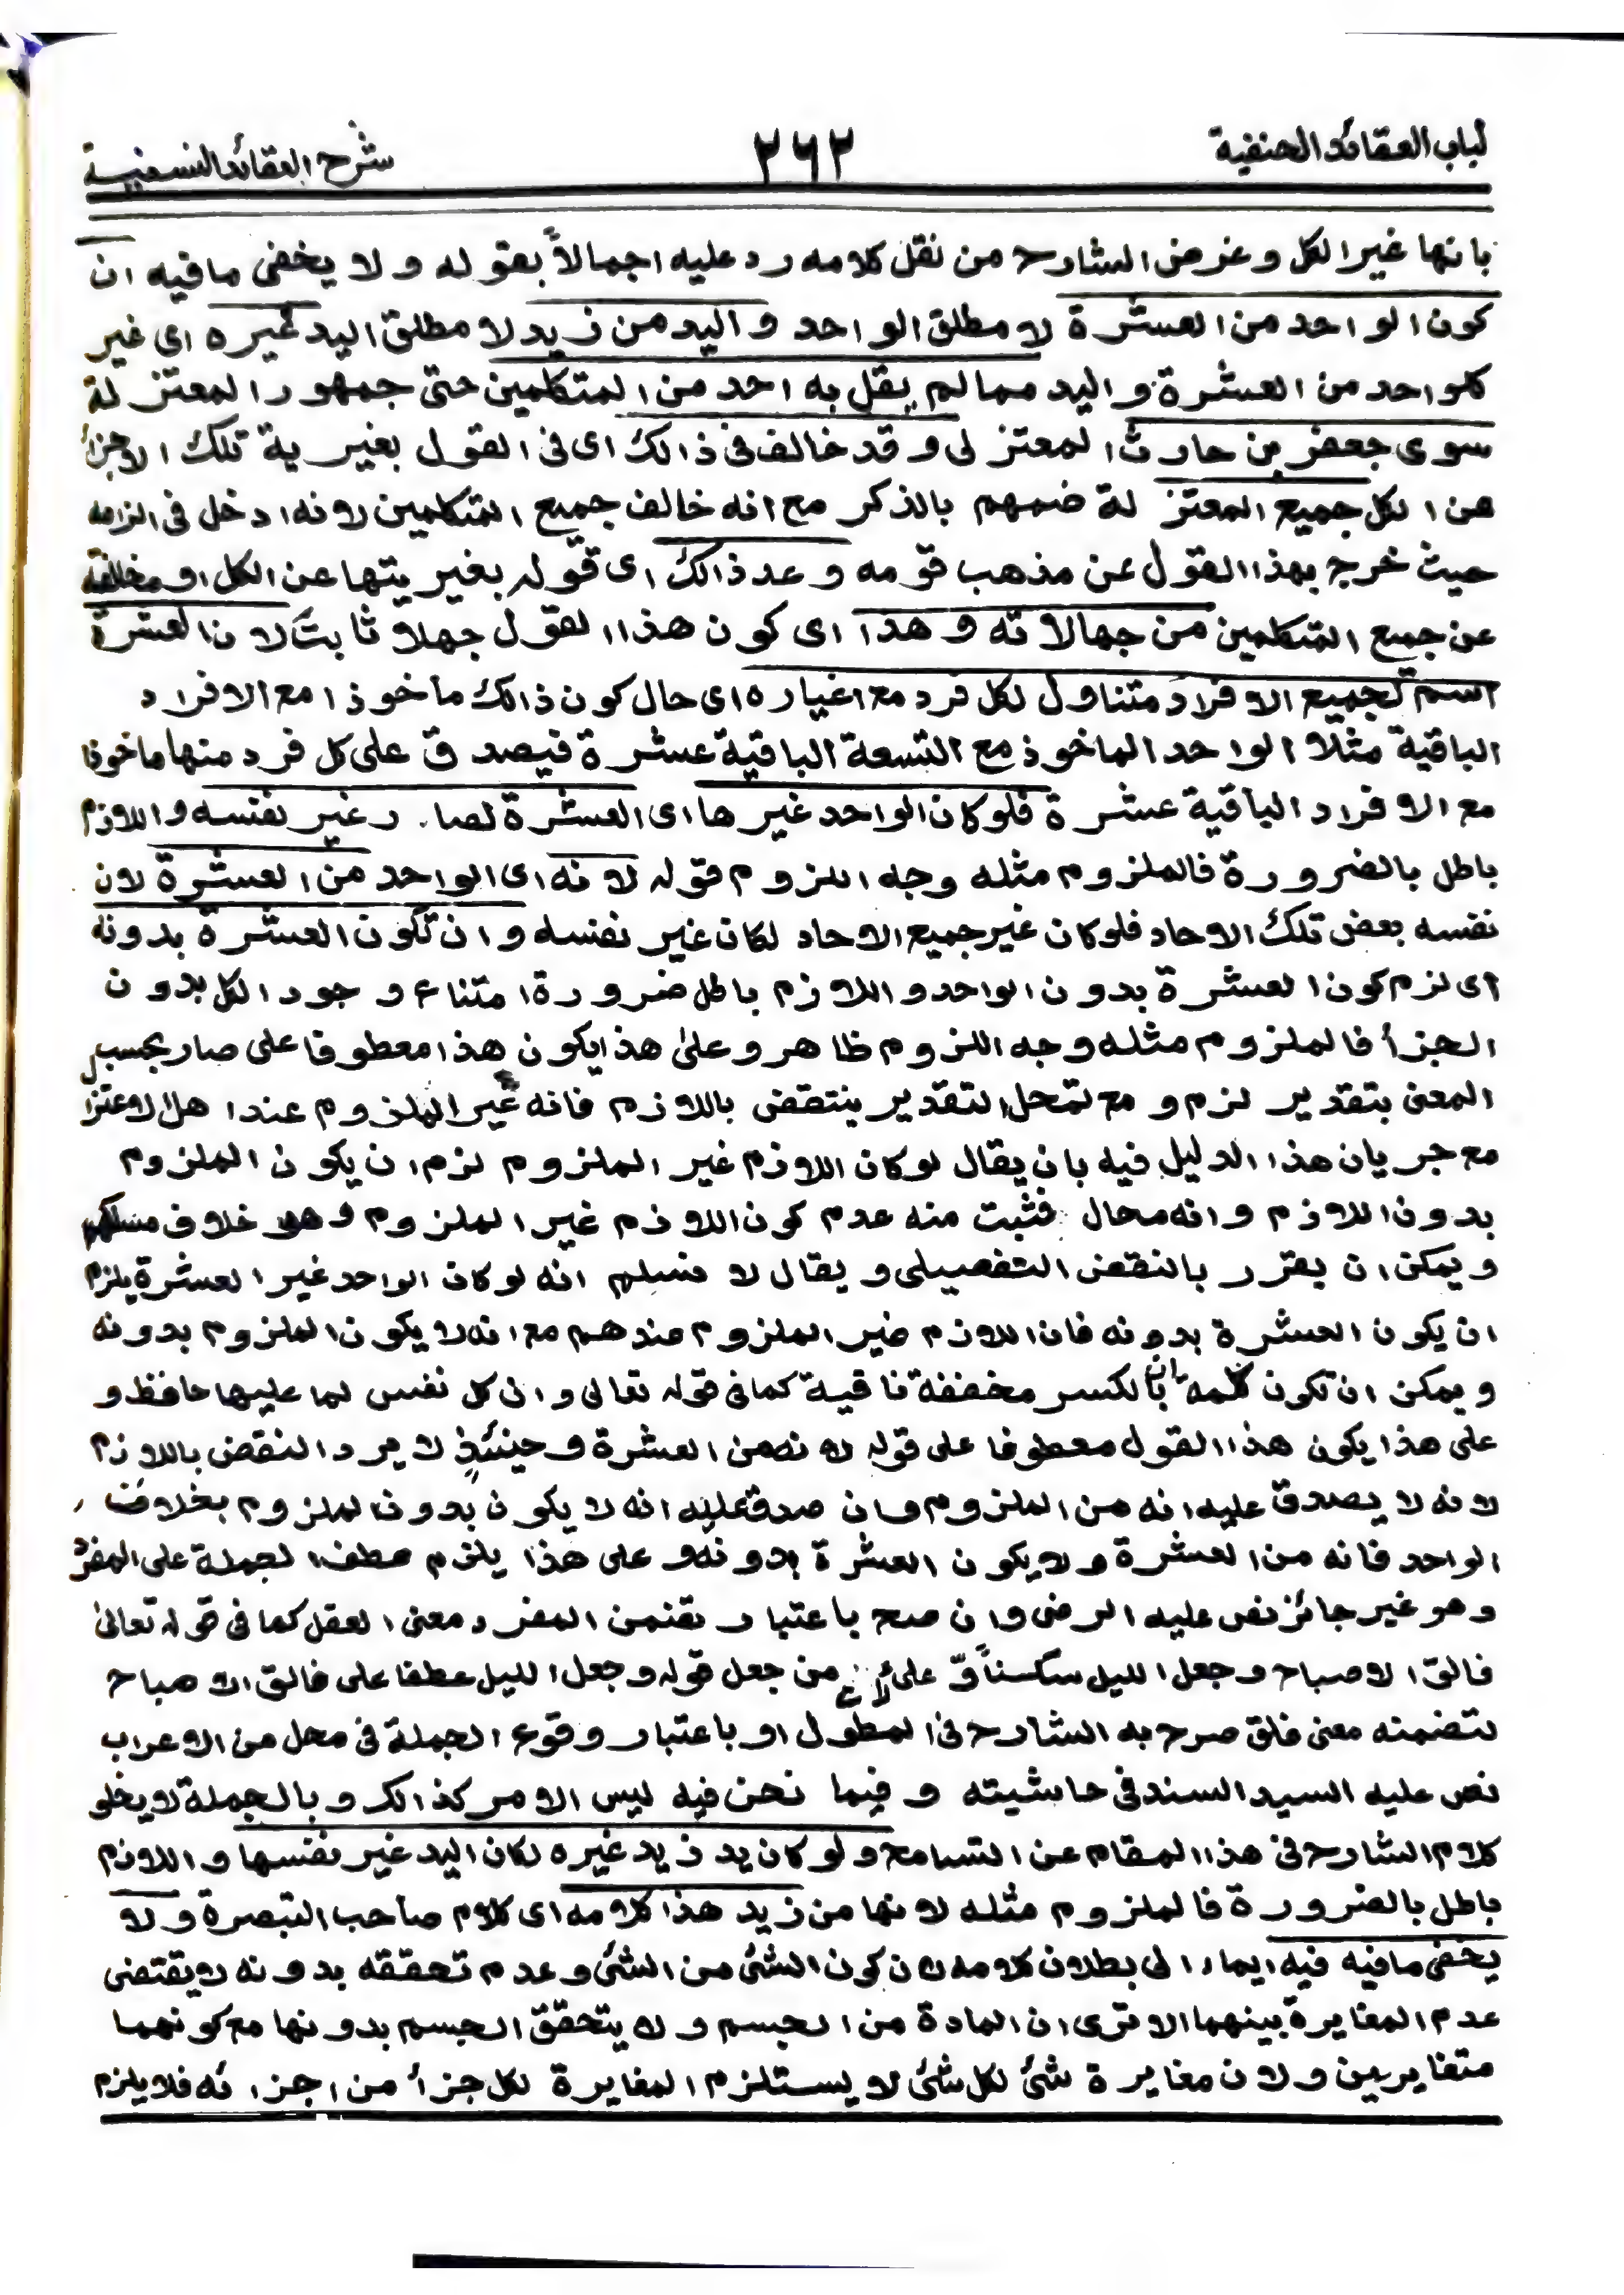 لباب العقائد الحنفية
٢٦٢
شرح العقائد النسفية
بانها غير الكل وغرض الشارح من نقل كلامه رد عليه اجمالاً بقوله ولا يخفى مافيه ان
كون الواحد من العشرة لا مطلق الواحد واليد من زيد لا مطلق اليد غيره اى غير
كلواحد من العشرة واليد مما لم يقل به احد من المتكلمين حتى جمهور المعتزلة
سوى جعفر بن حارث المعتزلى وقد خالف فى ذالك اى فى القول بغيرية تلك الاجزأ
عن الكل جميع المعتزلة ضمهم بالذكر مع انه خالف جميع المتكلمين لانه ادخل فى الزامه
حيث خرج بهذا القول عن مذهب قومه وعد ذالك اى قوله بغيريتها عن الكل او مخالفته
عن جميع المتكلمين من جهالاته وهذا اى كون هذا القول جهلا ثابت لان العشرة
اسم لجميع الافراد متناول لكل فرد مع اغياره اى حال كون ذالك مأخوذا مع الافراد
الباقية مثلا الواحد الماخوذ مع التسعة الباقية عشرة فيصدق على كل فرد منها ماخوذا
مع الافراد الباقية عشرة فلو كان الواحد غيرها اى العشرة لصار غير نفسه واللازم
باطل بالضرورة فالملزوم مثله وجه اللزوم قوله لانه اى الواحد من العشرة لان
نفسه بعض تلك الاحاد فلو كان غير جميع الاحاد لكان غير نفسه وان تكون العشرة بدونه
اى لزم كون العشرة بدون الواحد واللازم باطل ضرورة امتناع وجود الكل بدون
الجزأ فالملزوم مثله وجه اللزوم ظاهر وعلى هذا يكون هذا معطوفا على صار بحسب
المعنى بتقدير لزم ومع تمحل التقدير ينتقض باللازم فانه غير الملزوم عند اهل الاعتزال
مع جريان هذا الدليل فيه بان يقال لو كان اللازم غير الملزوم لزم ان يكون الملزوم
بدون اللازم وانه محال فثبت منه عدم كون اللازم غير الملزوم وهو خلاف مسلكهم
ويمكن ان يقرر بالنقض التفصيلى ويقال لا نسلم انه لو كان الواحد غير العشرة يلزم
ان يكون العشرة بدونه فان اللازم غير الملزوم عندهم مع انه لا يكون الملزوم بدونه
ويمكن ان تكون كلمه ان بالكسر مخففة نافية كما فى قوله تعالى وان كل نفس لما عليها حافظ و
على هذا يكون هذا القول معطوفا على قوله لانه من العشرة وحينئذٍ لا يرد النقض باللازم
لانه لا يصدق عليه انه من الملزوم وان صدق عليه انه لا يكون بدون الملزوم بخلاف
الواحد فانه من العشرة ولا يكون العشرة بدونه وعلى هذا يلزم عطف الجملة على المفرد
وهو غير جائز نص عليه الرضى وان صح باعتبار تضمن المفرد معنى العقل كما فى قوله تعالىٰ
فالق الاصباح وجعل الليل سكناً من جعل قوله وجعل الليل عطفا على فالق الاصباح
لتضمنه معنى فلق صرح به الشارح فى المطول او باعتبار وقوع الجملة فى محل من الاعراب
نص عليه السيد السند فى حاشيته وفيما نحن فيه ليس الامر كذالك وبالجملة لا يخلو
كلام الشارح فى هذا المقام عن التسامح ولو كان يد زيد غيره لكان اليد غير نفسها واللازم
باطل بالضرورة فالملزوم مثله لانها من زيد هذا كلامه اى كلام صاحب التبصرة ولا
يخفى مافيه فيه ايماء الى بطلان كلامه لان كون الشئ من الشئ وعدم تحققه بدونه لا يقتضى
عدم المغايرة بينهما الا ترى ان المادة من الجسم ولا يتحقق الجسم بدونها مع كونهما
متغايرين ولان مغايرة شئ لكل شئ لا يستلزم المغايرة لكل جزأ من اجزائه فلا يلزم